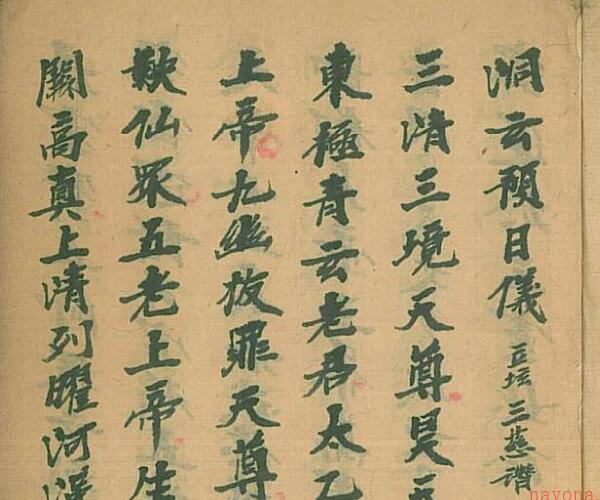 洞云預日儀 立坛 三慈讚
三清三境天尊昊天
東極青云老君太乙
上帝九幽拔罪天尊
歎仙眾五老上帝生
闕高真上清列曜河漢
nayona